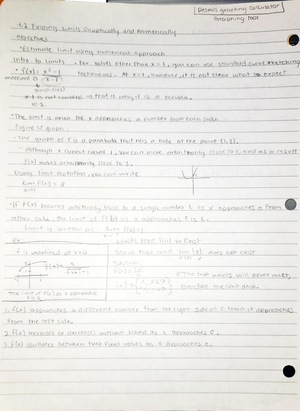 Desmos graphing calculator
Graphing tool
1.2 Finding Limits Graphically and Numerically
Objectives
Estimate limit using numerical approach
Intro to Limits • For values other than x = 1, you can use standard curve sketching
f(x) = x³ - 1 / x - 1 techniques. At x=1, however, it is not clear what to expect
x-1 is not
The limit is when the x approaches a number from both side
Figure of graph:
The graph of f is a parabola that has a hole at the point (1, 3).
Although x cannot equal 1, you can move arbitrarily close to 1, and as a result
f(x) moves arbitrarily close to 3.
Using limit notation, you can write
lim f(x) = 3
If f(x) becomes arbitrarily close to a single number L as x approaches c from
either side, the limit of f(x) as x approaches c is L.
Limit is written as lim f(x) = L
Ex:
Limits that Fail to Exist
f is undefined at x=0
Show that limit lim does not exist
The two points will never meet,
therefore the limit
The limit of f(x) as x approaches
1. f(x) approaches a different number from the right side of c than it approaches
from the left side.
2. f(x) increases or decreases without bound as x approaches c.
3. f(x) oscillates between two fixed values as x approaches c.